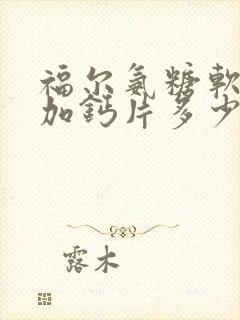 福尔氨糖軟
加鈣片多少
露木